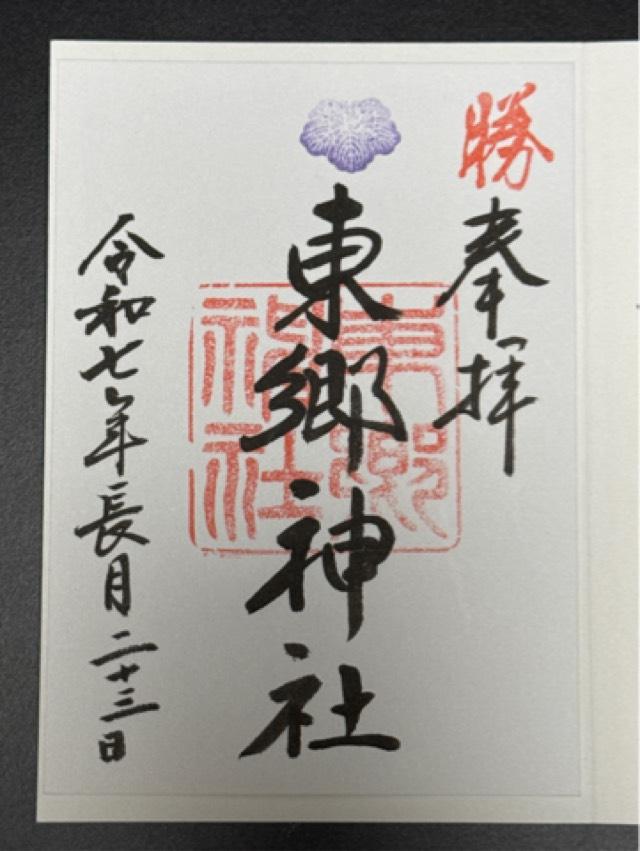 勝
奉拝
東郷神社
東郷神社
令和七年長月二十三日